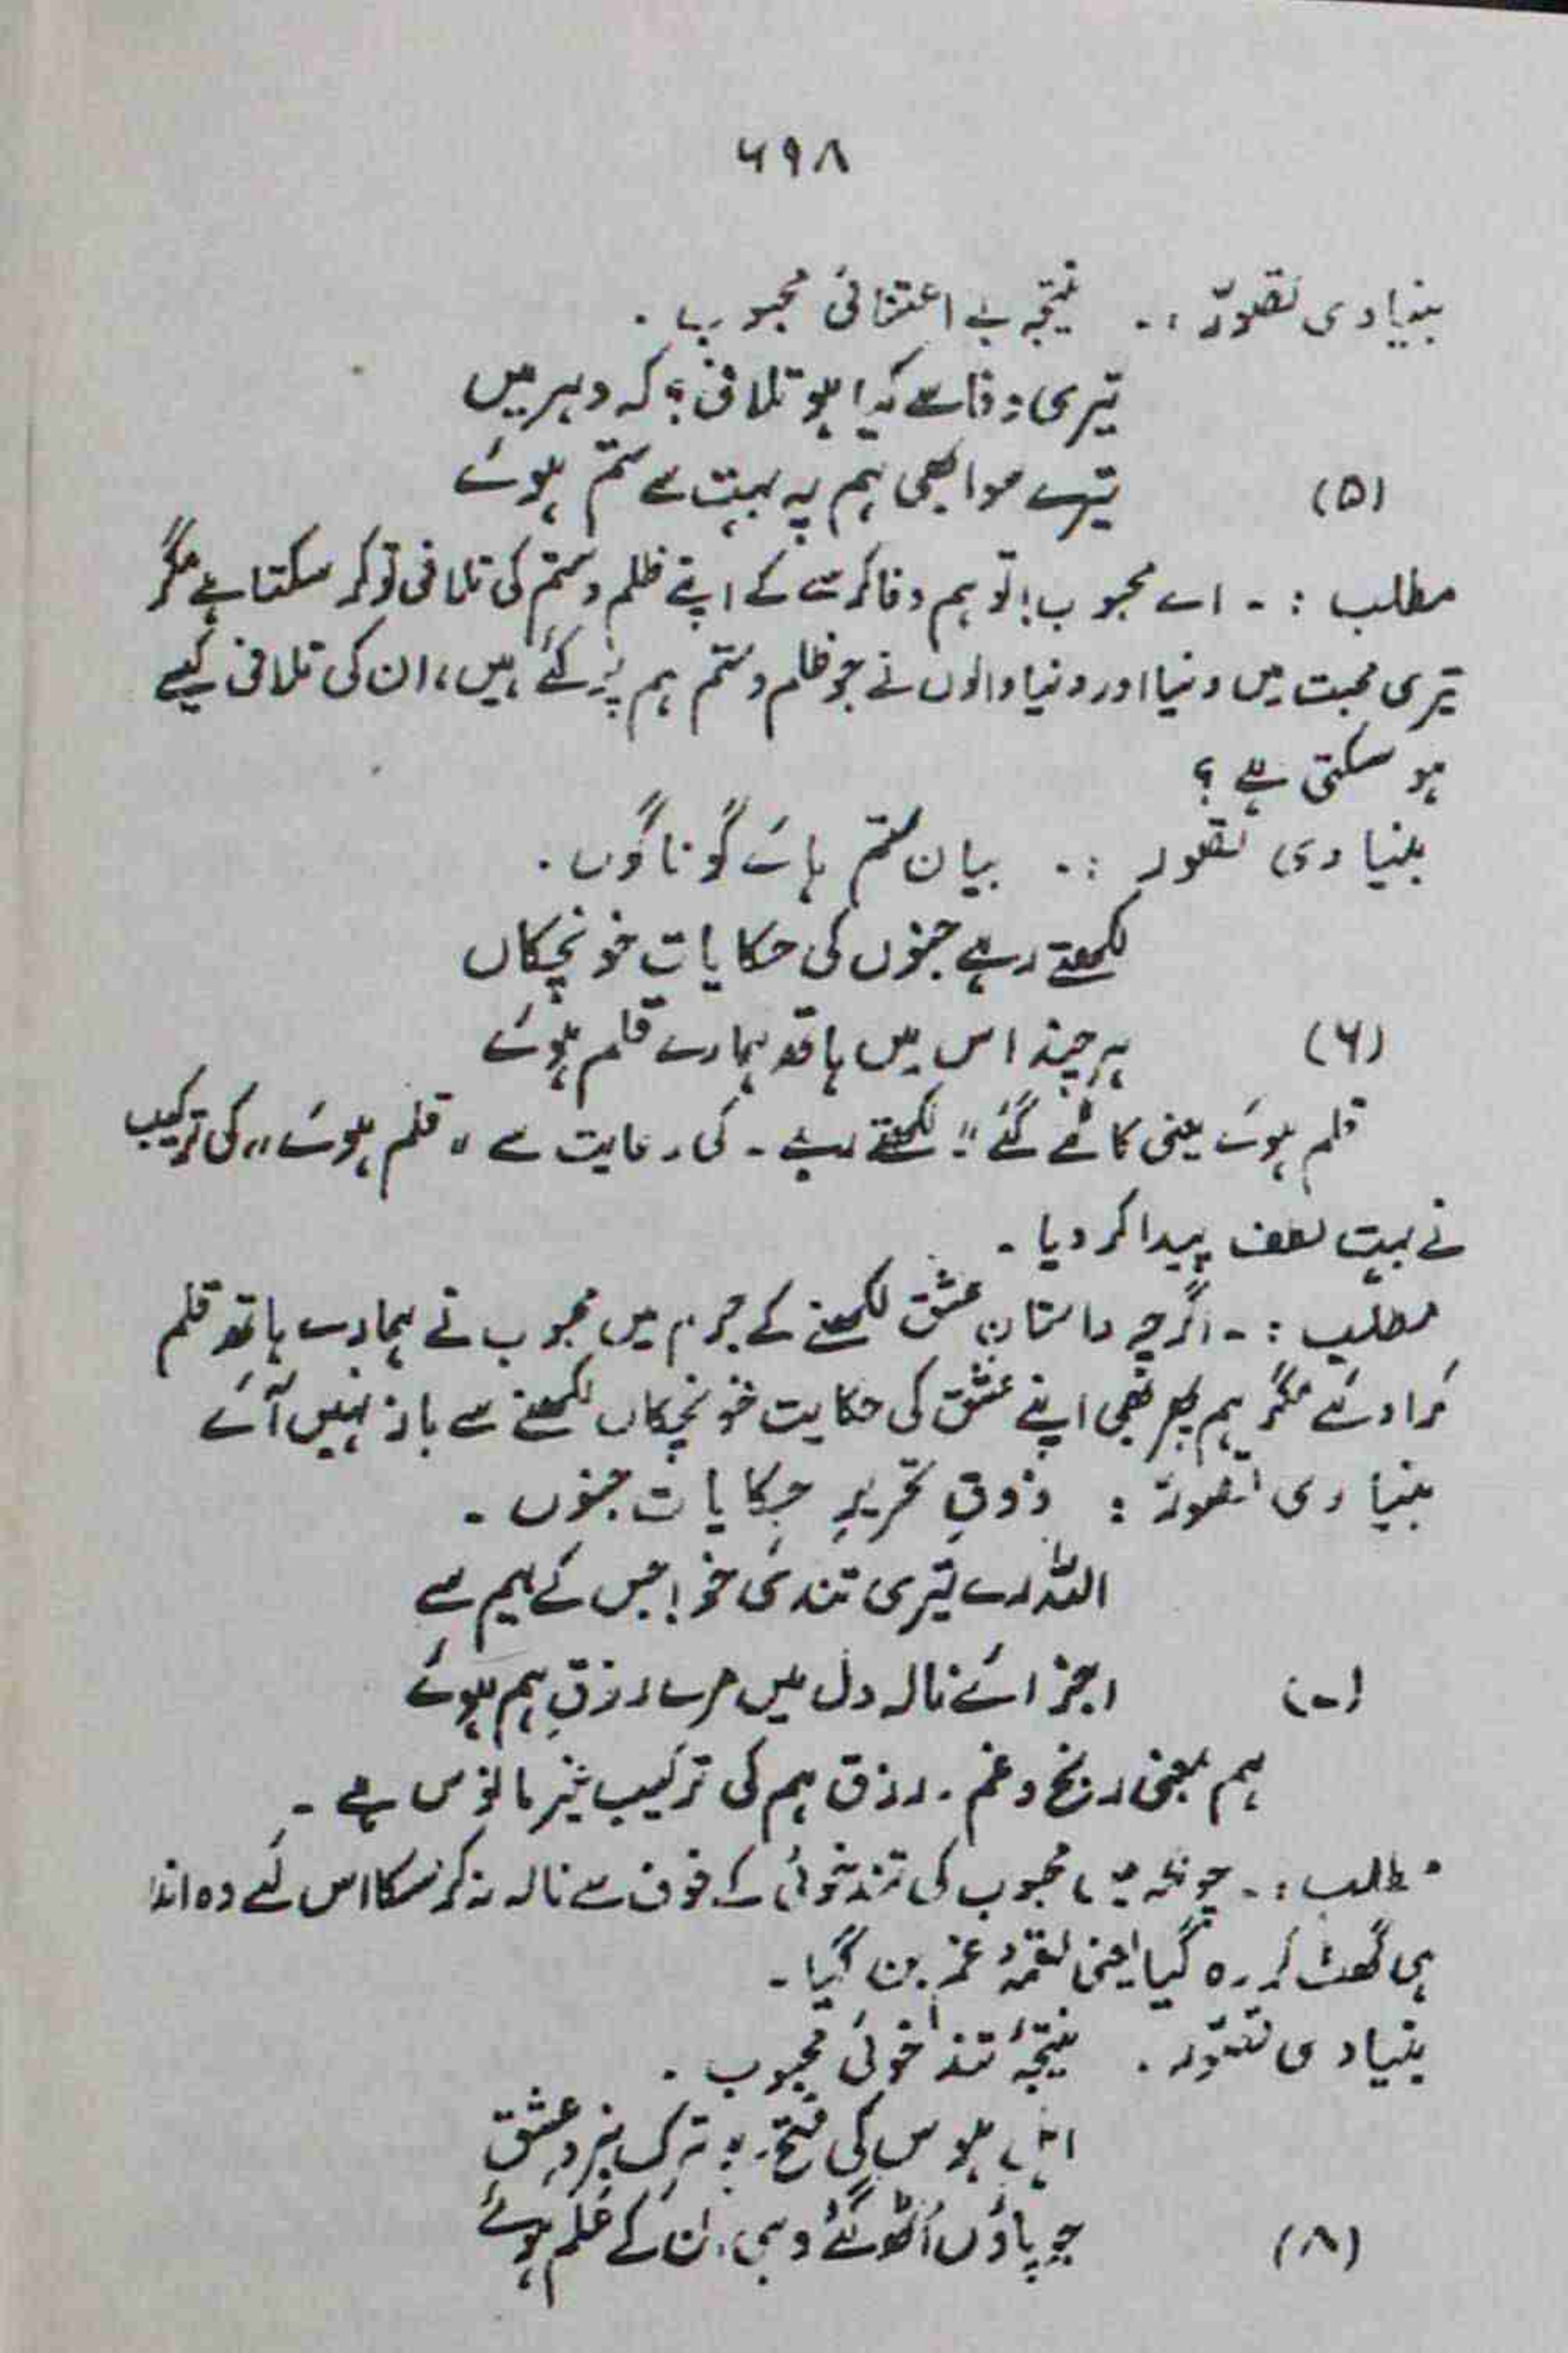 ۶۹۸
بنیادی تصوّر :۔ نتیجہ بے اعتنائی محبوب ۔
تیری وفا سے کیا ہو تلافی؟ کہ دہر میں
(۵) تیرے سوا بھی ہم پہ بہت سے ستم ہوئے
مطلب :۔ اے محبوب! تو ہم وفا کر سے کے اپنے ظلم و ستم کی تلافی تو کر سکتا ہے مگر
تیری محبت میں دنیا اور دنیا والوں نے جو ظلم و ستم ہم پر کئے ہیں، ان کی تلافی کیسے
ہو سکتی ہے ؟
بنیادی تصور :۔ بیان ستم ہائے گوناگوں ۔
لکھتے رہے جنوں کی حکایات خونچکاں
(۶) ہر چند اس میں ہاتھ ہمارے قلم ہوئے
قلم ہوئے یعنی کاٹے گئے "لکھتے رہے ۔ کی رعایت سے "قلم ہوئے" کی ترکیب
نے بہت لطف پیدا کر دیا ۔
مطلب :۔ اگرچہ داستانِ عشق لکھنے کے جرم میں محبوب نے ہمارے ہاتھ قلم
کرا دئے مگر ہم پھر بھی اپنے عشق کی حکایت خونچکاں لکھنے سے باز نہیں آئے
بنیادی تصور : ذوقِ تحریرِ حکایات جنوں ۔
اللہ رے تیری تندیٔ خو! جس کے بیم سے
(۷) اجزائے نالہ دل میں مرے رزقِ ہم ہوئے
ہم بمعنی رنج و غم ۔ رزق ہم کی ترکیب غیر مانوس ہے ۔
مطلب :۔ چونکہ میں محبوب کی تند خوئی کے خوف سے نالہ نہ کر سکا اس لئے وہ اندر
ہی گھٹ کر رہ گیا یعنی لقمۂ غم بن گیا ۔
بنیادی تصوّر ۔ نتیجۂ تند خوئی محبوب ۔
اہلِ ہوس کی فتح ہے ترکِ نبردِ عشق
(۸) جو پاؤں اُٹھ گئے وہی ان کے عَلم ہوئے